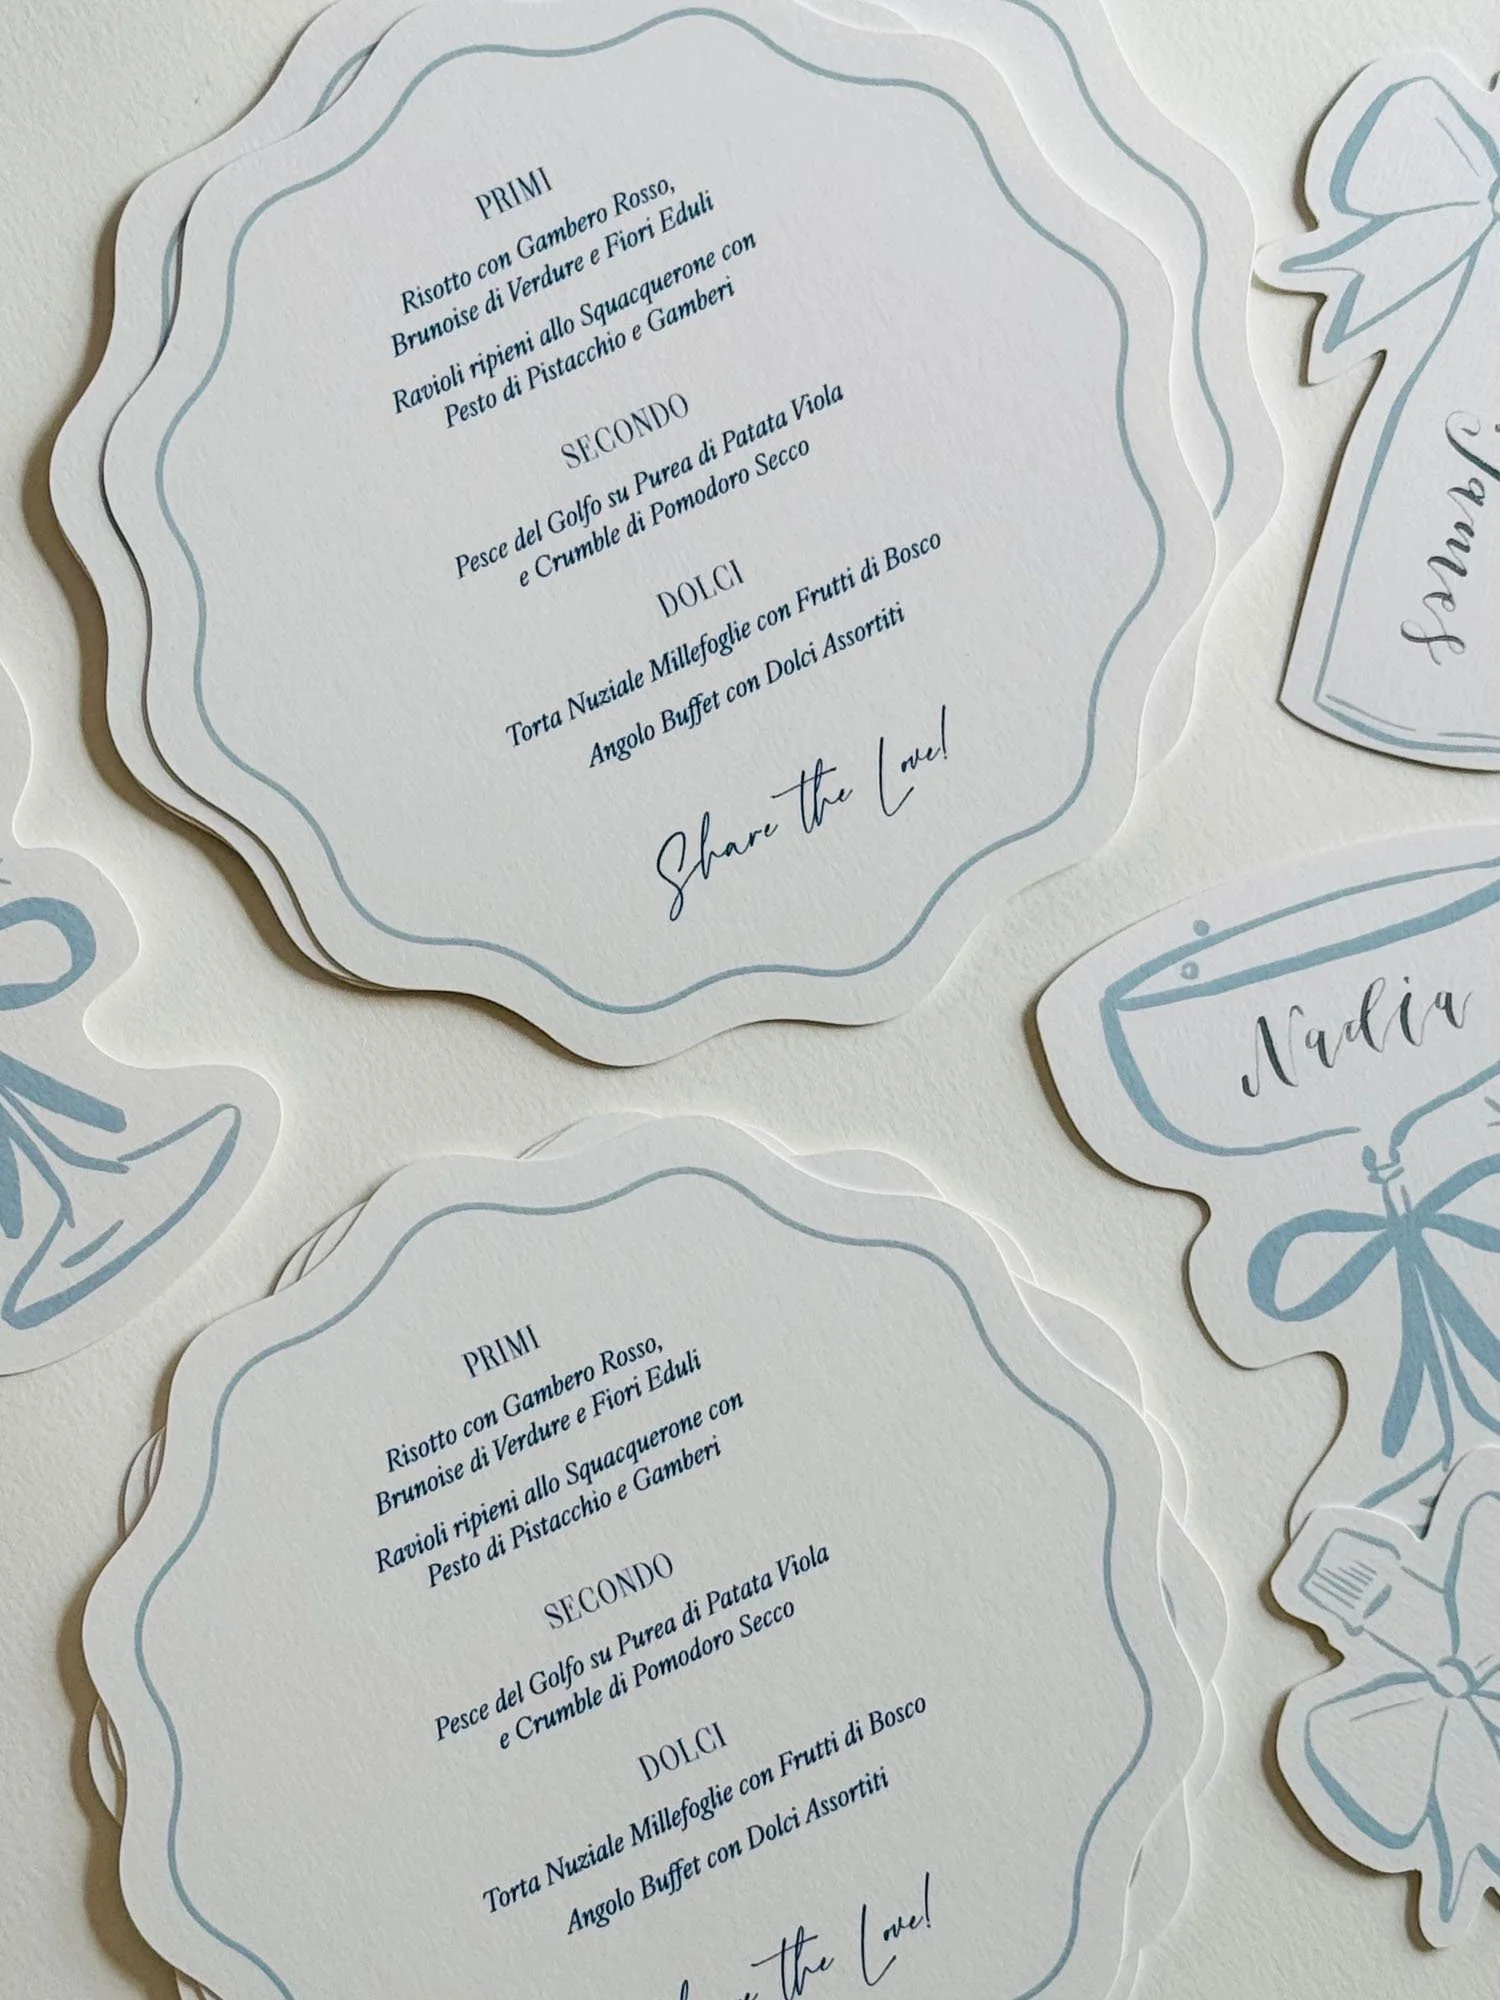 PRIMI
Risotto con Gambero Rosso,
Brunoise di Verdure e Fiori Eduli
Ravioli ripieni allo Squacquerone con
Pesto di Pistacchio e Gamberi
SECONDO
Pesce del Golfo su Purea di Patata Viola
e Crumble di Pomodoro Secco
DOLCI
Torta Nuziale Millefoglie con Frutti di Bosco
Angolo Buffet con Dolci Assortiti
Share the Love!
James
Nadia
PRIMI
Risotto con Gambero Rosso,
Brunoise di Verdure e Fiori Eduli
Ravioli ripieni allo Squacquerone con
Pesto di Pistacchio e Gamberi
SECONDO
Pesce del Golfo su Purea di Patata Viola
e Crumble di Pomodoro Secco
DOLCI
Torta Nuziale Millefoglie con Frutti di Bosco
Angolo Buffet con Dolci Assortiti
the Love!